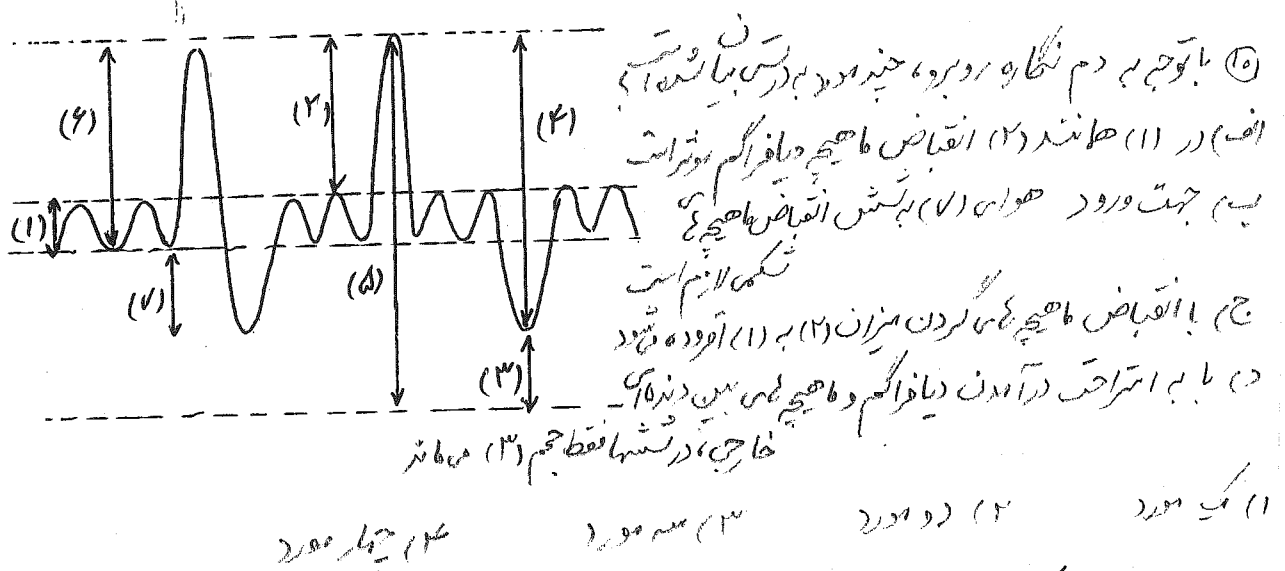 ۱۵) با توجه به دم نگاره روبرو، چند مورد به درستی بیان شده است؟
الف) در (۱) همانند (۲) انقباض ماهیچه دیافراگم موثر است
ب) جهت ورود هوای (۷) به شش انقباض ماهیچه های
شکمی لازم است
ج) با انقباض ماهیچه های گردن میزان (۲) به (۱) افزوده می شود
د) با به استراحت درآمدن دیافراگم و ماهیچه های بین دنده ای
خارجی، در ششها فقط حجم (۳) می ماند
۱) یک مورد ۲) دو مورد ۳) سه مورد ۴) چهار مورد
(۶)
(۲)
(۴)
(۱)
(۷)
(۵)
(۳)